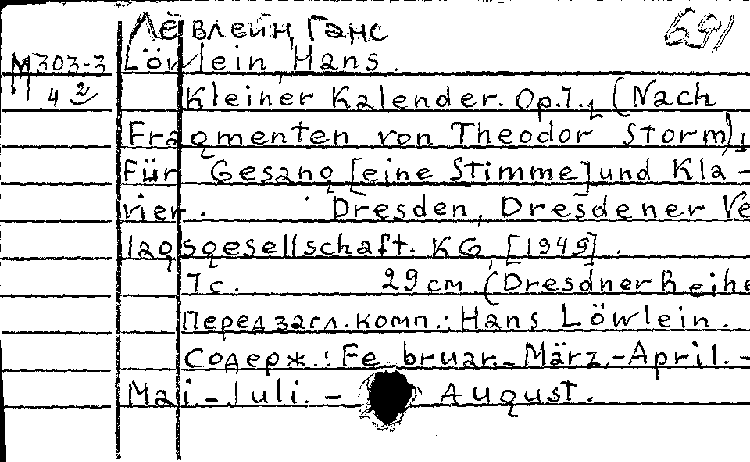 Лёвлейн, Ганс
691
М 303-3
4 2
Löwlein, Hans.
Kleiner Kalender. Op.7., (Nach
Fragmenten von Theodor Storm),
Für Gesang [eine Stimme] und Kla-
vier. Dresden, Dresdener Ve
lagsgesellschaft. KG, [1949].
7 с. 29 см. (Dresdner Reihe
Перед загл. комп.: Hans Löwlein.
Содерж.: Februar.-März.-April.-
Mai.-Juli.- August.